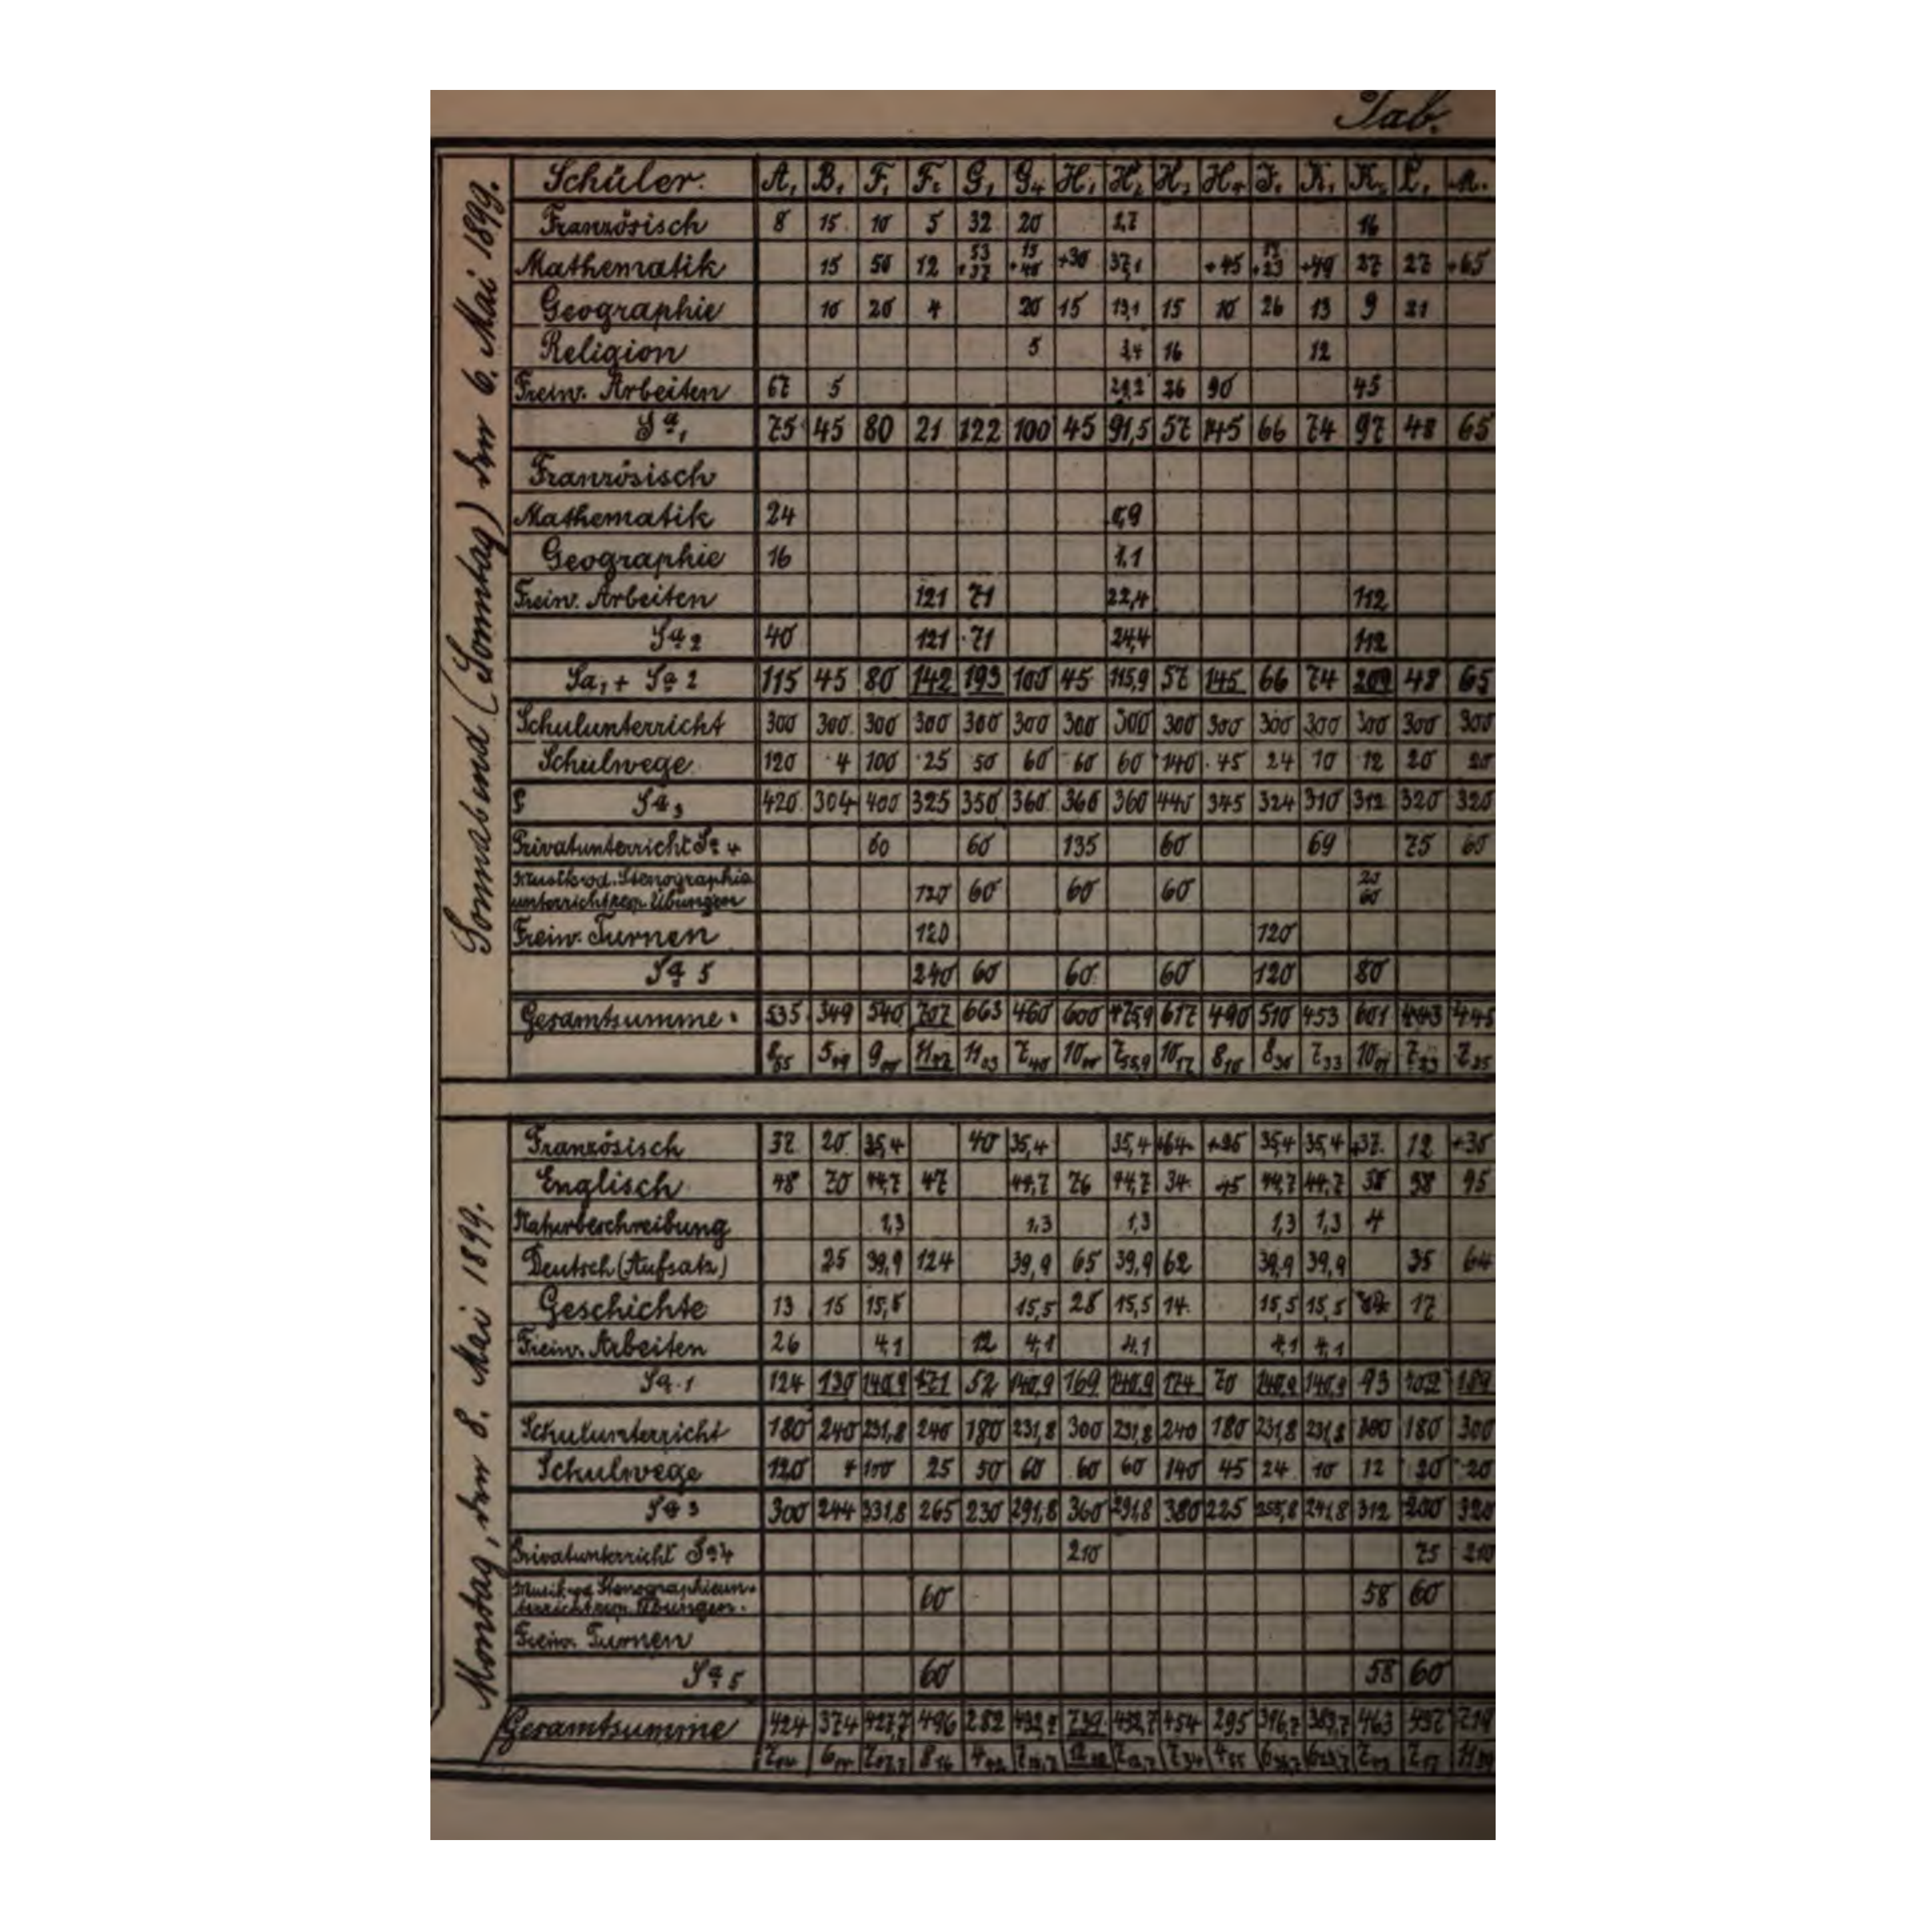 Tab.
Sonnabend (Sonntag) den 6. Mai 1899.
Schüler. A1 B1 F1 F2 G1 G4 H1 H2 H3 H4 J1 K1 K2 L1
Französisch 8 15 10 5 32 20 2,7 16
Mathematik 15 50 12 53 +37 15 +40 +30 37,1 +45 +23 +49 27 27 +65
Geographie 10 20 4 20 15 13,1 15 10 26 13 9 21
Religion 5 3,4 16 12
Freiw. Arbeiten 67 5 26 90 45
Sa1 75 45 80 21 122 100 45 91,5 57 145 66 74 97 48 65
Französisch
Mathematik 24 0,9
Geographie 16 1,1
Freiw. Arbeiten 121 71 22,4 112
Sa2 40 121 71 24,4 112
Sa1 + Sa2 115 45 80 142 193 100 45 115,9 57 145 66 74 209 48 65
Schulunterricht 300 300 300 300 300 300 300 300 300 300 300 300 300 300 300
Schulwege 120 4 100 25 50 60 60 60 140 45 24 10 12 20 20
Sa3 420 304 400 325 350 360 360 360 440 345 324 310 312 320 320
Privatunterricht Sa4 60 60 135 60 69 75 60
Musik od. Stenographie
unterricht resp. Übungen 120 60 60 60 20 60
Freiw. Turnen 120 120
Sa5 240 60 60 60 120 80
Gesamtsumme: 535 349 540 707 663 460 600 475,9 617 490 510 453 601 443 445
8 55 5 49 9 00 11 47 11 03 7 40 10 00 7 55,9 10 17 8 10 8 30 7 33 10 01 7 23 7 25
Montag, den 8. Mai 1899.
Französisch 37 20 35,4 40 35,4 35,4 +64 +25 35,4 35,4 +37 12 +30
Englisch 48 70 44,7 47 44,7 76 44,7 34 45 44,7 44,7 38 38 95
Naturbeschreibung 1,3 1,3 1,3 1,3 1,3 4
Deutsch (Aufsatz) 25 39,9 124 39,9 65 39,9 62 39,9 39,9 35 64
Geschichte 13 15 15,5 15,5 28 15,5 14 15,5 15,5 17
Freiw. Arbeiten 26 4,1 12 4,1 4,1 4,1 4,1
Sa.1 124 130 140,9 171 52 140,9 169 140,9 174 70 140,9 140,9 93 102 189
Schulunterricht 180 240 231,8 240 180 231,8 300 231,8 240 180 231,8 231,8 300 180 300
Schulwege 120 4 100 25 50 60 60 60 140 45 24 10 12 20 20
Sa3 300 244 331,8 265 230 291,8 360 291,8 380 225 255,8 241,8 312 200 320
Privatunterricht Sa4 210 75 210
Musik od. Stenographieun-
terricht resp. Übungen. 60 58 60
Freiw. Turnen
Sa5 60 58 60
Gesamtsumme 424 374 496 282 432,7 739 432,7 454 295 396,7 463 437 719
7 04 8 16 4 42 7 12,7 7 34 4 55 7 17